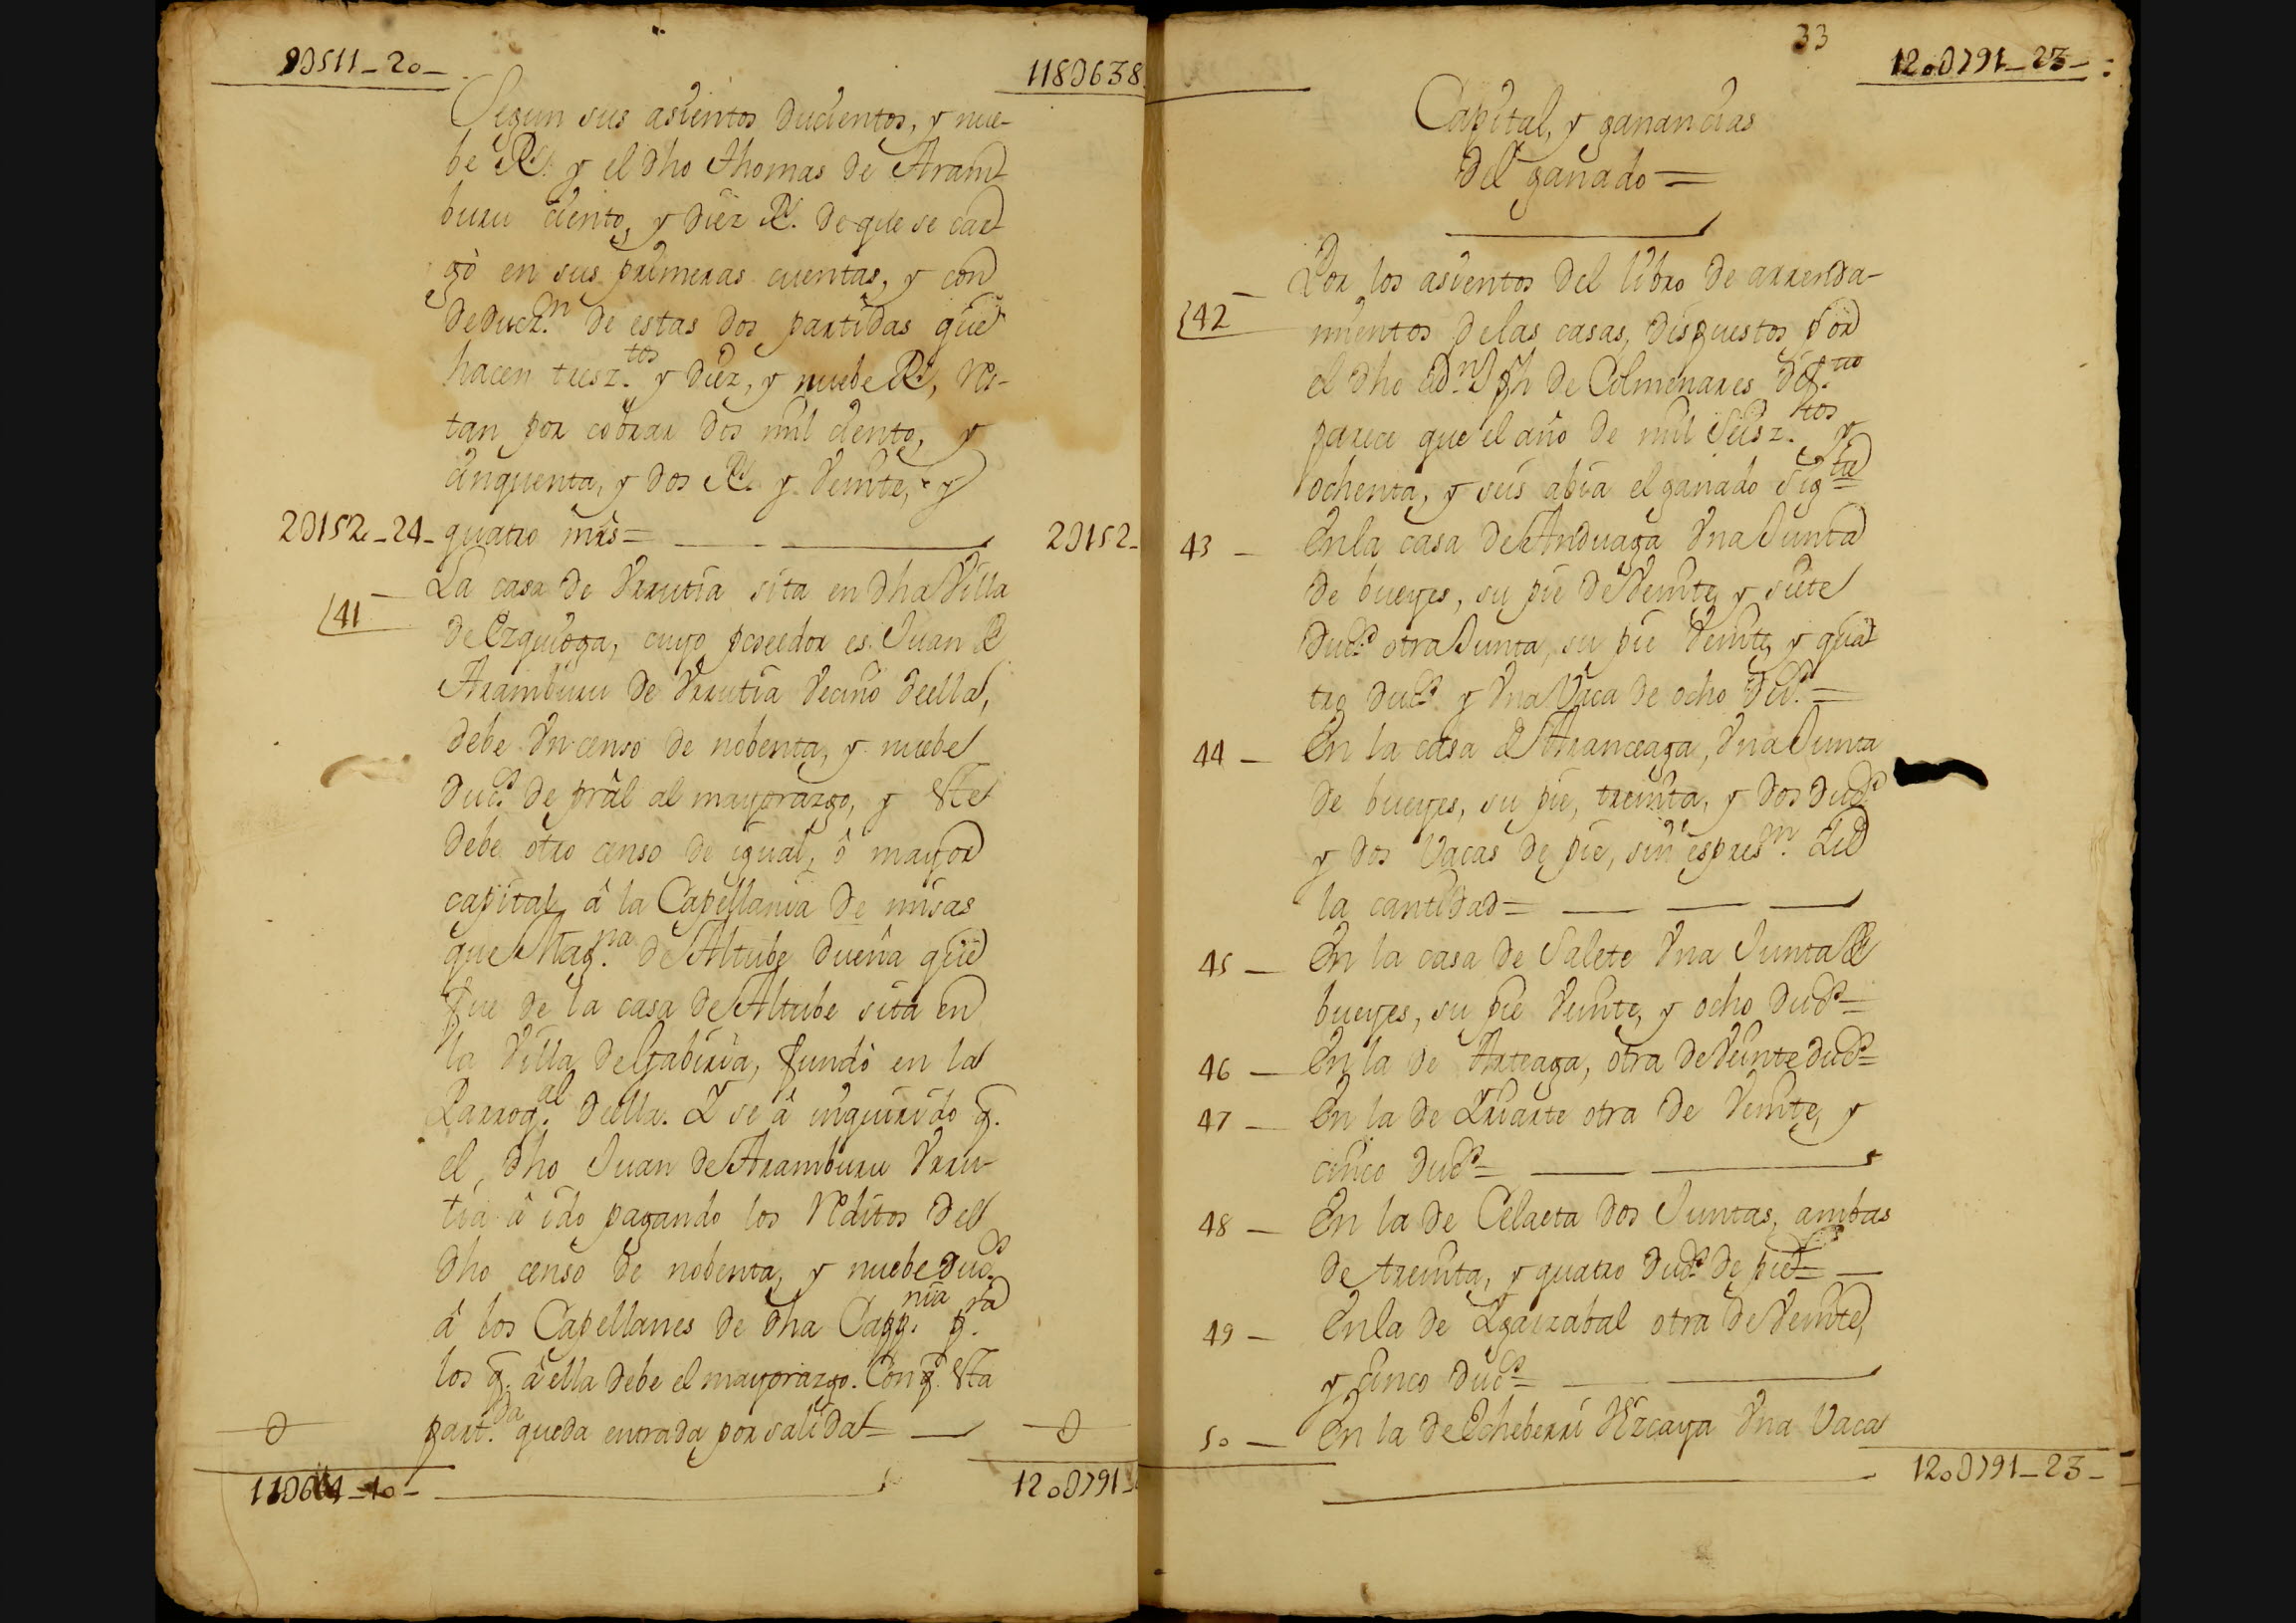 9D511-20- 118D638
Segun sus asientos ducientos, y nue-
be Rs. y el dho Thomas de Aram-
buru ciento, y diez Rs. de que se car-
gò en sus primeras cuentas, y con
deducz.on de estas dos partidas que
hacen tresz.tos y diez, y nuebe Rs, res-
tan por cobrar dos mil ciento, y
cinquenta, y dos Rs. y veinte, y
2D152-24- quatro mrs= 2D152-
41 La casa de Vrrutia sita en dha Villa
de Ezquioga, cuyo poseedor es Juan de
Aramburu de Vrrutia vecino de ella,
debe vn censo de nobenta, y nuebe
Duc.s de prâl al mayorazgo, y este
debe otro censo de igual, ô mayor
capital â la Capellania de misas
que Mag.na de Altube dueña que
fue de la casa de Altube sita en
la Villa de Gabiria, fundò en la
Parroq.al de ella. Y se â inquirido q.
el dho Juan de Aramburu Vrru-
tia â ido pagando los reditos del
dho censo de nobenta, y nuebe duc.s
â los Capellanes de dha Capp.nia p.ra
los q. â ella debe el mayorazgo. Con q. esta
D part.da queda entrada por salida= D
11D664-10- 12oD791-
33
12oD791-23-
Capital, y ganancias
del ganado=
42 Por los asientos del libro de arrenda-
mientos de las casas, dispuestos por
el dho Ad.n D Jph de Colmenares
parece que el año de mil seisz.tos y
ochenta, y seis abia el ganado sig.te
43 - En la casa de Anduaga vna Junta
de bueyes, su pie de veinte, y siete
Duc.s otra Junta, su pie veinte, y qua-
tro duc.s y vna Vaca de ocho Du.s=
44 - En la casa de Arranceaga, vna Junta
de bueyes, su pie, treinta, y dos Duc.s
y dos Vacas de pie, sin espres.on de
la cantidad=
45 - En la casa de Salete vna Junta de
bueyes, su pie veinte, y ocho Duc.s=
46 - En la de Arteaga, otra de veinte duc.s=
47 - En la de Yriarte otra de veinte, y
cinco Duc.s=
48 - En la de Celaeta dos Juntas, ambas
de treinta, y quatro Duc.s de pie=
49 - En la de Ygarzabal otra de veinte,
y cinco Duc.s=
50 - En la de Echeberri Vizcaya vna Vaca
12oD791-23-